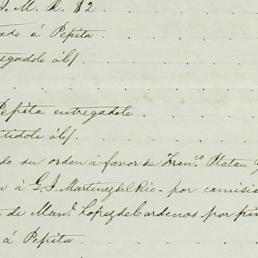 J. M. R. 82
ado á Pepita
egadole ó/f
Pepita entregadole
itidole ó/f.
do su orden á favor de Fran.co Plateu
n á G. J. Martinez del Rio - por comisio
de Man.l Lopez de Cardenas por
á Pepita